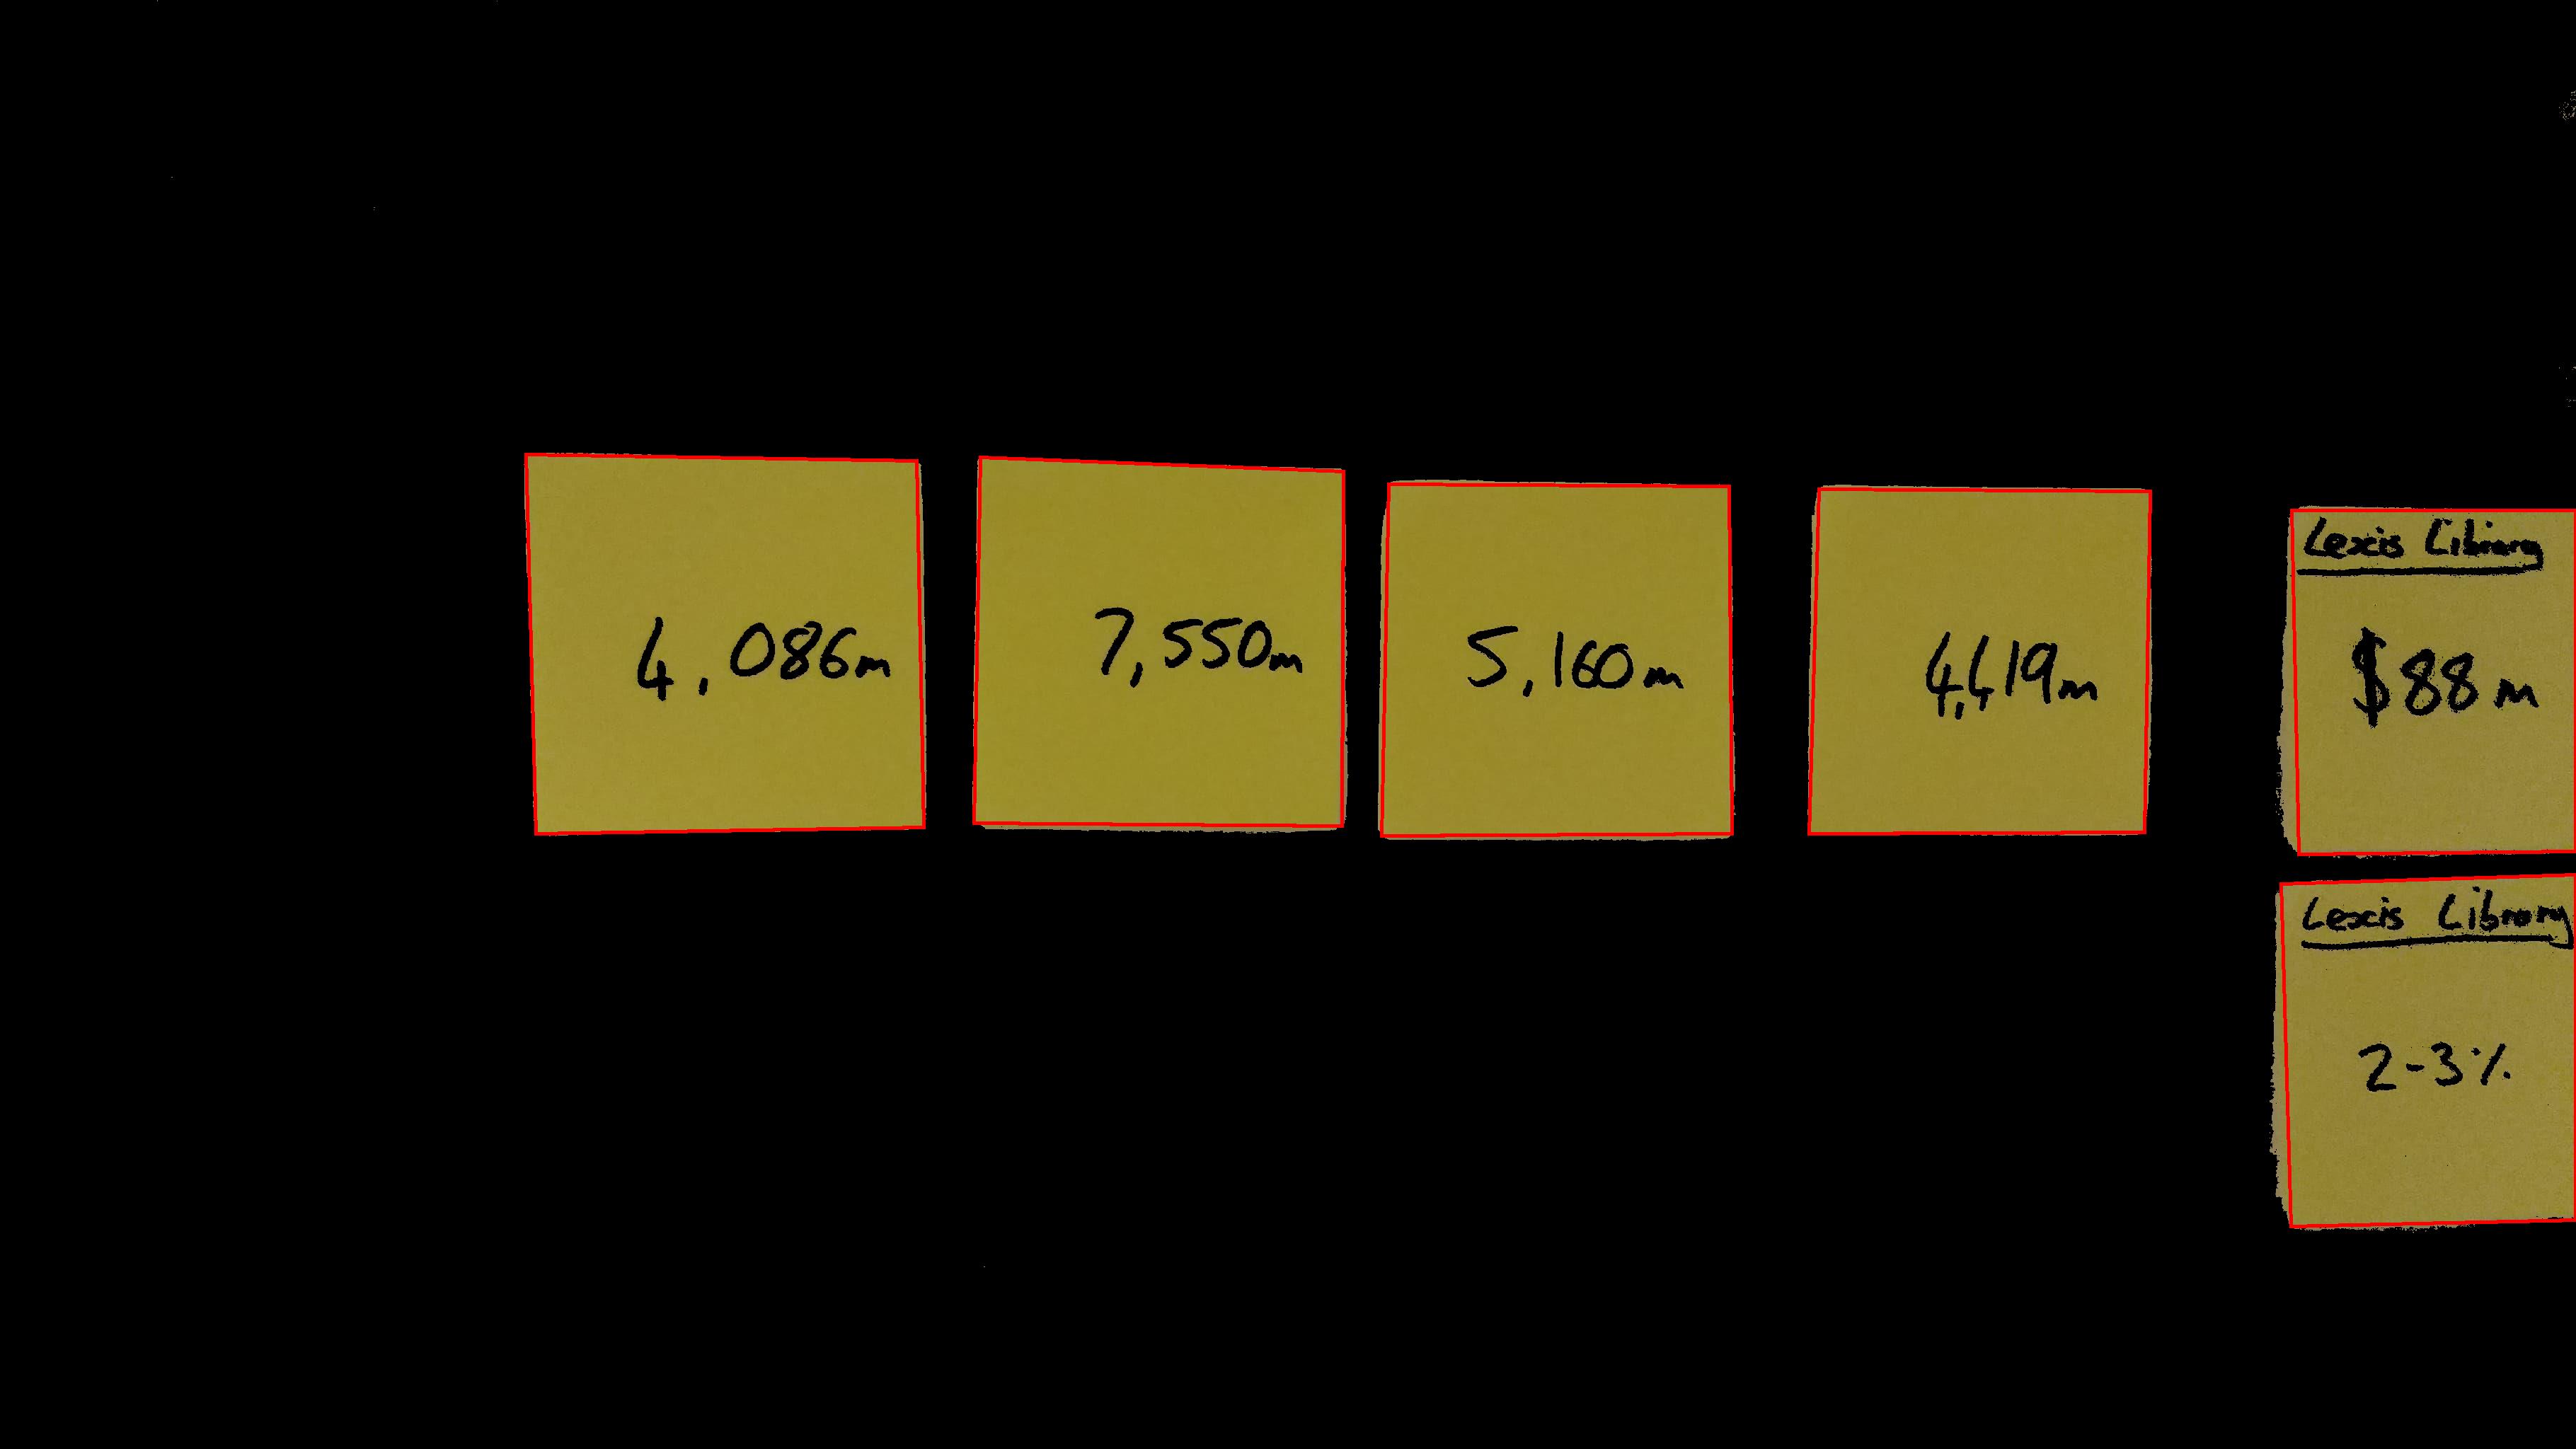 4,086m
7,550m
5,160m
4,419m
Lexis Library
$88m
Lexis Library
2-3%